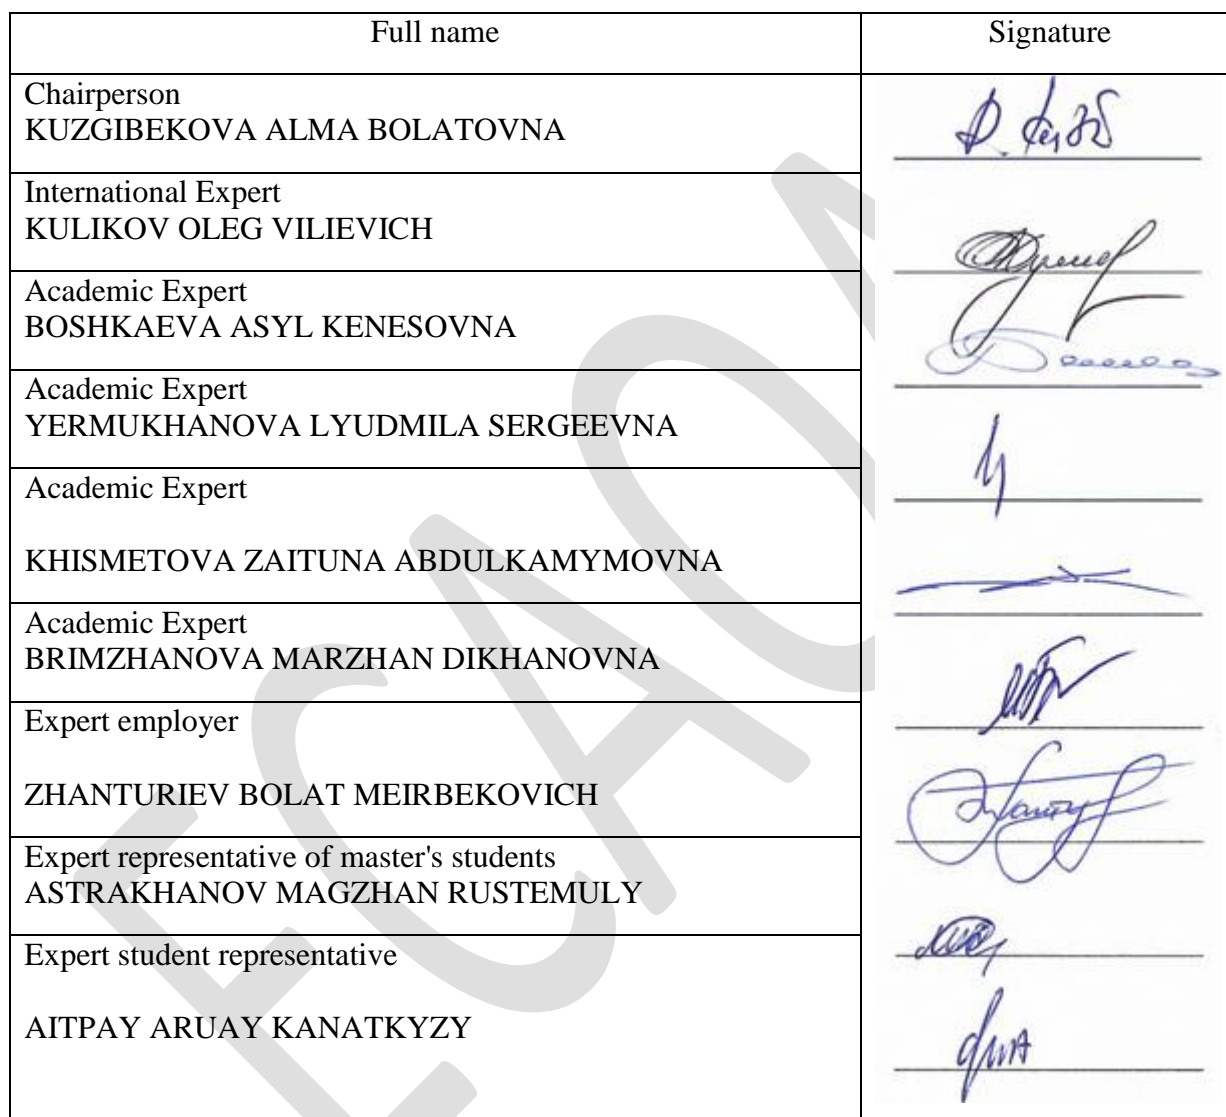 Full name
Signature
Chairperson
KUZGIBEKOVA ALMA BOLATOVNA
International Expert
KULIKOV OLEG VILIEVICH
Academic Expert
BOSHKAEVA ASYL KENESOVNA
Academic Expert
YERMUKHANOVA LYUDMILA SERGEEVNA
Academic Expert
KHISMETOVA ZAITUNA ABDULKAMYMOVNA
Academic Expert
BRIMZHANOVA MARZHAN DIKHANOVNA
Expert employer
ZHANTURIEV BOLAT MEIRBEKOVICH
Expert representative of master's students
ASTRAKHANOV MAGZHAN RUSTEMULY
Expert student representative
AITPAY ARUAY KANATKYZY